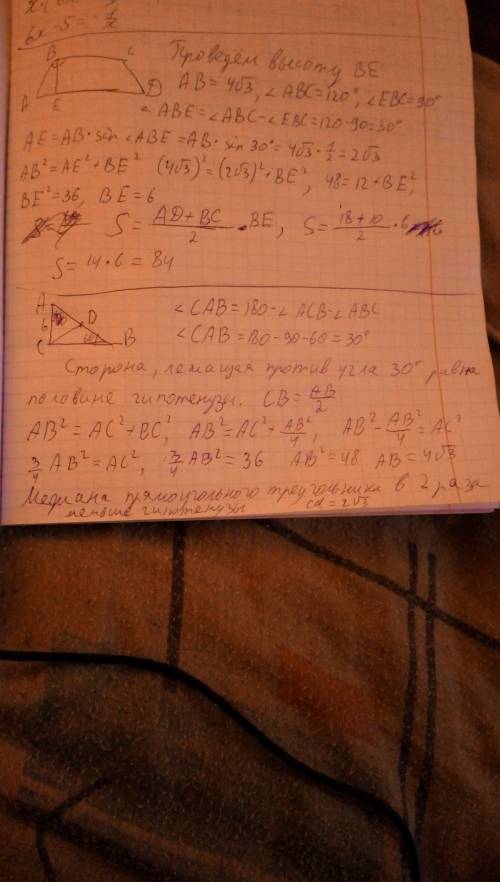 6x-5=-\frac{1}{x}
B C
A E D
Проведём высоту BE
AB = 4√3, ∠ABC=120°, ∠EBC=90°
∠ABE=∠ABC-∠EBC=120-90=30°
AE=AB·sin∠ABE=AB·sin 30°=4√3·\frac{1}{2}=2√3
AB²=AE²+BE² (4√3)²=(2√3)²+BE², 48=12+BE²,
BE²=36, BE=6
S=\frac{AD+BC}{2}·BE, S=\frac{18+10}{2}·6
S=14·6=84
A D
6
C 60 B
∠CAB=180-∠ACB-∠ABC
∠CAB=180-90-60=30°
Сторона, лежащая против угла 30° равна
половине гипотенузы. CB=\frac{AB}{2}
AB²=AC²+BC², AB²=AC²+\frac{AB²}{4}, AB²-\frac{AB²}{4}=AC²
\frac{3}{4}AB²=AC², \frac{3}{4}AB²=36 AB²=48 AB=4√3
Медиана прямоугольного треугольника в 2 раза
меньше гипотенузы cd=2√3